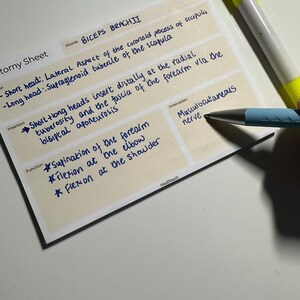 Muscle: BICEPS BRACHII
tomy Sheet
- Short head: Lateral Aspect of the coronoid process of scapula
- Long head: Supraglenoid tubercle of the scapula
Insertion:
* Short + long heads insert distally at the radial
tuberosity and the fascia of the forearm via the
bicipital aponeurosis
Function:
* Supination of the forearm
* Flexion at the elbow
* Flexion at the shoulder
Innervation:
Musculocutaneous
nerve